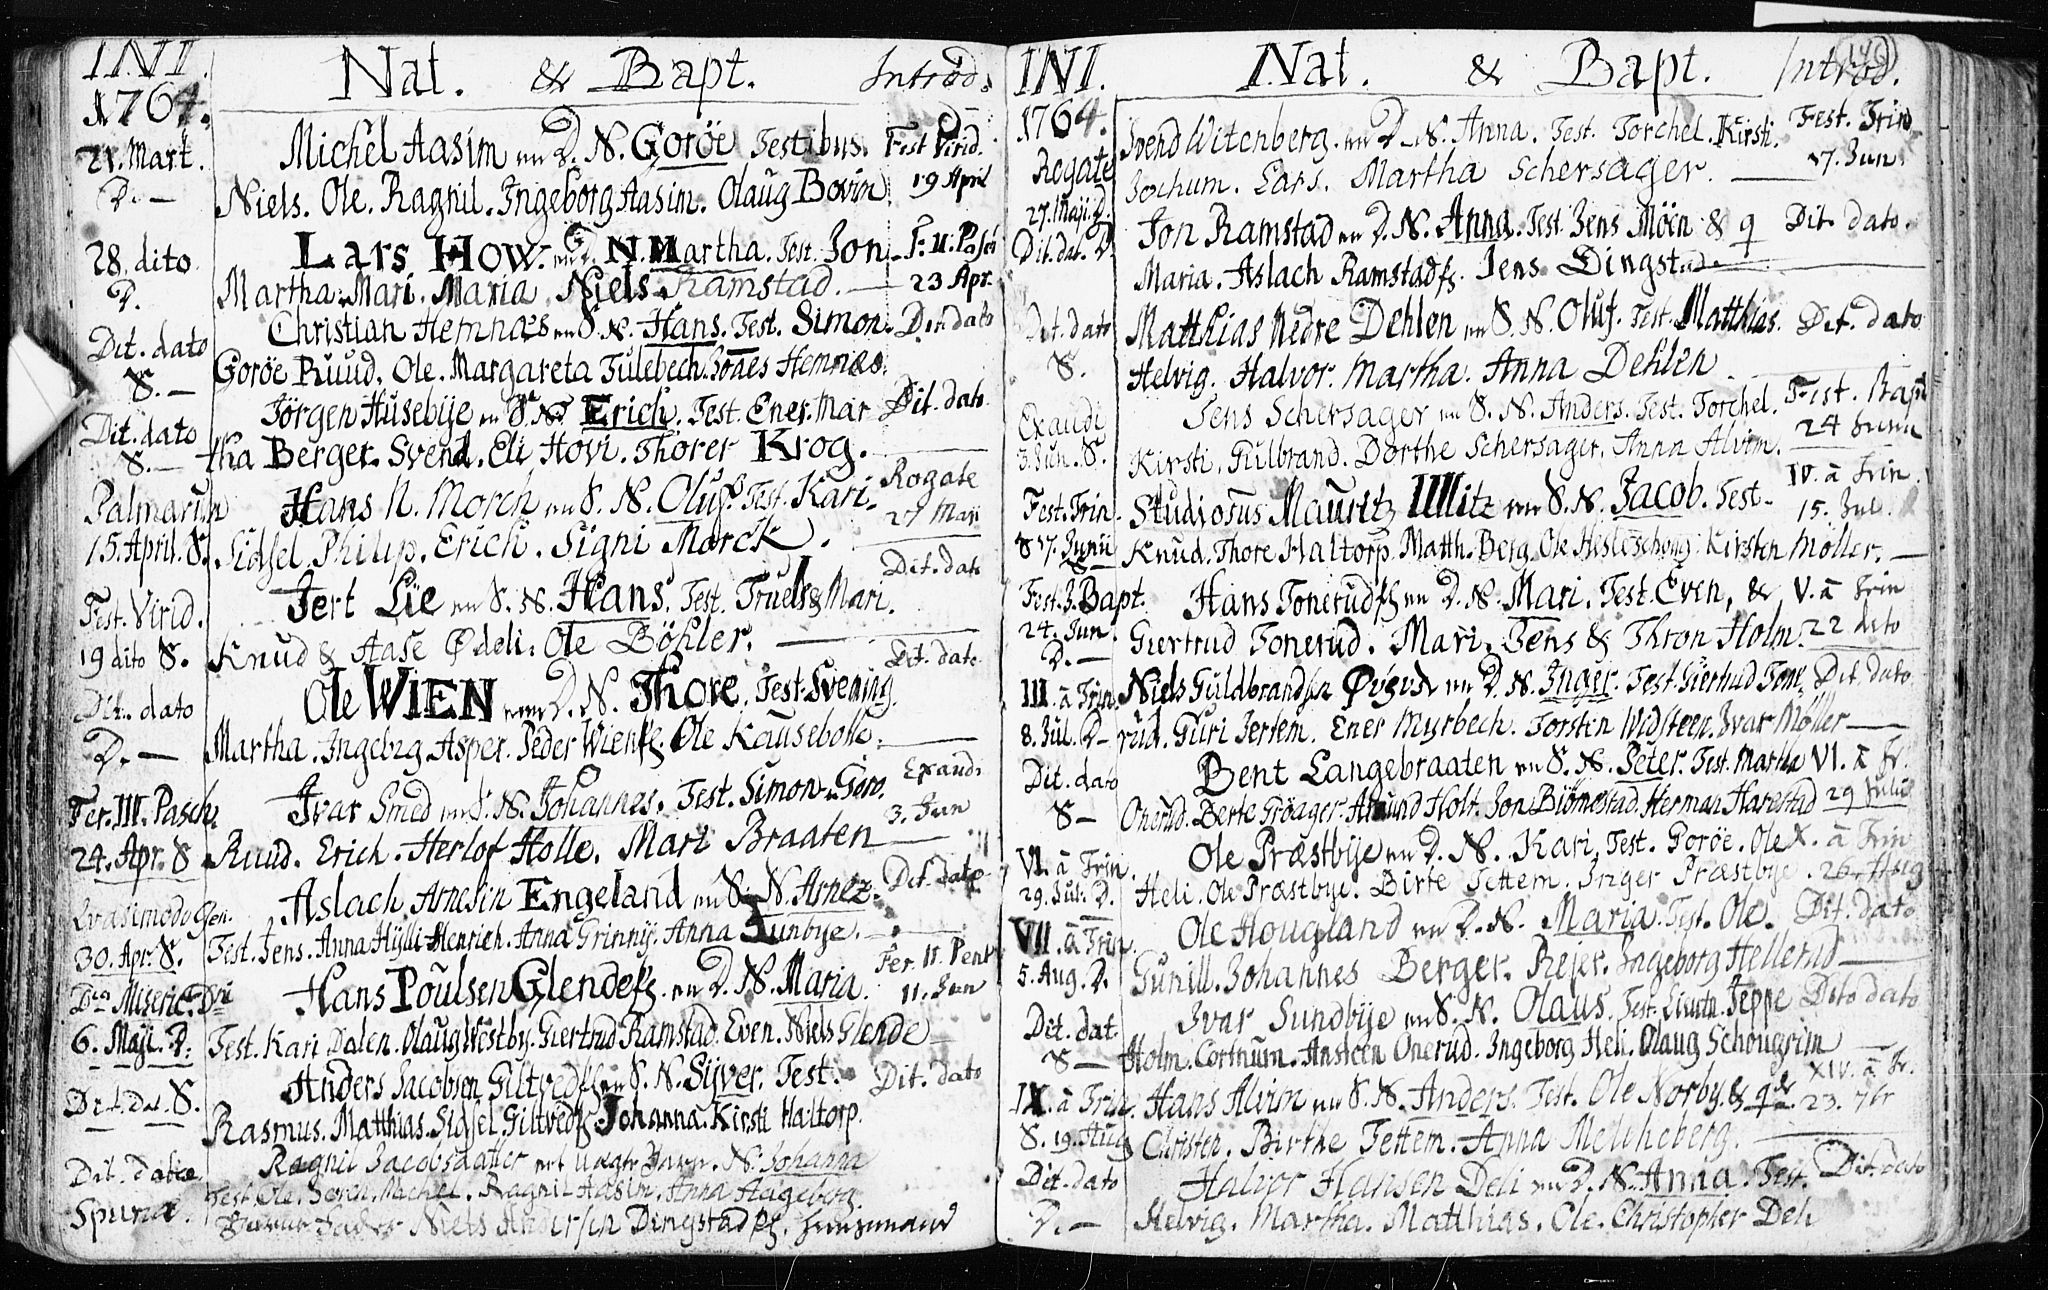 INI.
Nat. & Bapt.
Introd.
1764.
21. Mart.
D. —
Michel Aasim en D. N. Goröe Testibus.
Fest Virid.
Niels. Ole. Ragnil. Ingeborg Aasim. Olaug Bovim
19 April
28. dito
D.
Lars How. en D. N. Martha. Test. Jon
F. II. Pasch
Martha. Mari. Maria. Niels Ramstad. —
23 Apr.
Dit. dato
S. —
Christian Hemnæs en S. N. Hans. Test. Simon.
Dit dato
Goröe Ruud. Ole. Margareta Tulebech. Hemnæs.
Dit. dato
S. —
Jörgen Husebÿe en S. N. Erich. Test. Ener. Mar
Dit. dato
tha Berger. Svend. Eli Hovi. Thorer Krog.
Palmarum
15. April. S.
Hans N. Morch en S. N. Oluf. Test. Kari
Rogate
27 Maji
Sidsel. Philip. Erich. Signi Morck.
Fest. Virid.
19 dito S.
Jert Lie en S. N. Hans. Test. Truels & Mari.
Dit. dato
Knud & Aase Ødeli. Ole Böhler. —
Dit. dato
D. —
Ole WIEN en D. N. Thore. Test. Svening
Dit. dato
Martha. Ingebrg Asper. Peder Wiens. Ole Kausebolle. —
Fer. III. Pasch.
24. Apr. S
Ivar Smed en S. N. Johannes. Test. Simon. Goro.
Exaudi
3. Jun
Ruud. Erich. Herlof Holle. Mari Braaten —
Qvasimodo Gen.
30. Apr. S.
Aslach Arnesin Engeland en S. N. Arne.
Dit. dato
Test. Jens. Anna Hylli. Henrich. Anna Grinnÿ. Anna Sunbye.
Dca Miseric. Dni
6. Maji. D.
Hans Poulsen Glende en D. N. Maria.
Fer. II. Pent
11. Jun
Test. Kari Dalen. Olaug Westby. Giertrud Ramstad. Even. Niels Glende
Dit. dat. S.
Anders Jacobsen Giltved en S. N. Sijver. Test.
Dit. dato
Rasmus. Matthias. Sidsel. Giltved. Johanna. Kirsti Haltorp.
Dit. dato
Spuria.
Ragnil Jacobsdatter N. Johanna
Test. Ole. Søren. Michel. Ragnil Aasim. Anna Aageberg.
Niels Andersen Dingstad

INI.
Nat. & Bapt.
Introd.
146
1764.
Rogate
27. Maji. D.
Svend Witenberg. en D. N. Anna. Test. Torchel. Kirsti.
Fest. Trin
17. Jun.
Jochum. Lars. Martha Schersager. —
Dit. dat. D.
Jon Ramstad en D. N. Anna. Test. Jens Möen & q
Dit. dato.
Maria. Aslach Ramstad. Jens Dingstad.
Dit. dato
S.
Matthias Nedre Dehlen en S. N. Oluf. Test. Matthias.
Dit. dato
Helvig. Halvor. Martha. Anna Dehlen
Exaudi
3. Jun. S.
Jens Schersager en S. N. Anders. Test. Torchel.
Fest. Bapt
24 Junii
Kirsti. Gulbrand. Dorthe Schersager. Anna Alvim.
Fest. Trin.
S 17. Junii
Studiosus Mauritz Willitz en S. N. Jacob. Test.
IV. à Trin.
15. Jul.
Knud. Thore Haltorp. Matth. Berg. Ole Hesteschong. Kirsten Möller. —
Fest. J. Bapt.
24. Jun.
D. —
Hans Tonerud en D. N. Mari. Test. Even, &
V. à Trin
22 dito
Giertrud Tonerud. Mari. Jens & Thron Holm.
III. à Trin.
8. Jul. D —
Niels Guldbrands Øvevd en D. N. Inger. Test. Giertrud Tone
Dit. dato
rud. Guri Jertem. Ener Myrbech. Torsten Widsteen. Ivar Møller —
Dit. dato
S —
Bent Langebraaten en S. N. Peter. Test. Martha
VI. à Tr.
29 Julii
Onerud. Berte Tröager. Amund Holt. Jon Biörnestad. Herman Harestad
VI. à Trin.
29. Jul. D.
Ole Præstbÿe en D. N. Kari. Test. Goröe. Ole
X. à Trin
26. Aug
Heli. Ole Præstbye. Birte Tettem. Inger Præstbye.
VII. à Trin.
5. Aug. D.
Ole Hougland en D. N. Maria. Test. Ole.
Dit. dato
Gunill. Johannes Berger. Rejer. Ingeborg Hellerud —
Dit. dat
S —
Ivar Sundbÿe en S. N. Olaus. Test. Lieutn. Jeppe
Dito dato
Holm. Cortnum. Ansteen Onerud. Ingeborg Heli. Olaug Schougrim —
IX. à Trin
S. 19. Aug
Hans Alvim en S. N. Anders. Test. Ole Norby. &
XIV. à Tr.
23. 7br
Christen. Birthe Tettem. Anna Melcheberg.
Dit. dato
D. —
Halvor Hansen Deli en D. N. Anna. Test.
Dit. dato
Helvig. Martha. Matthias. Ole. Christopher Deli